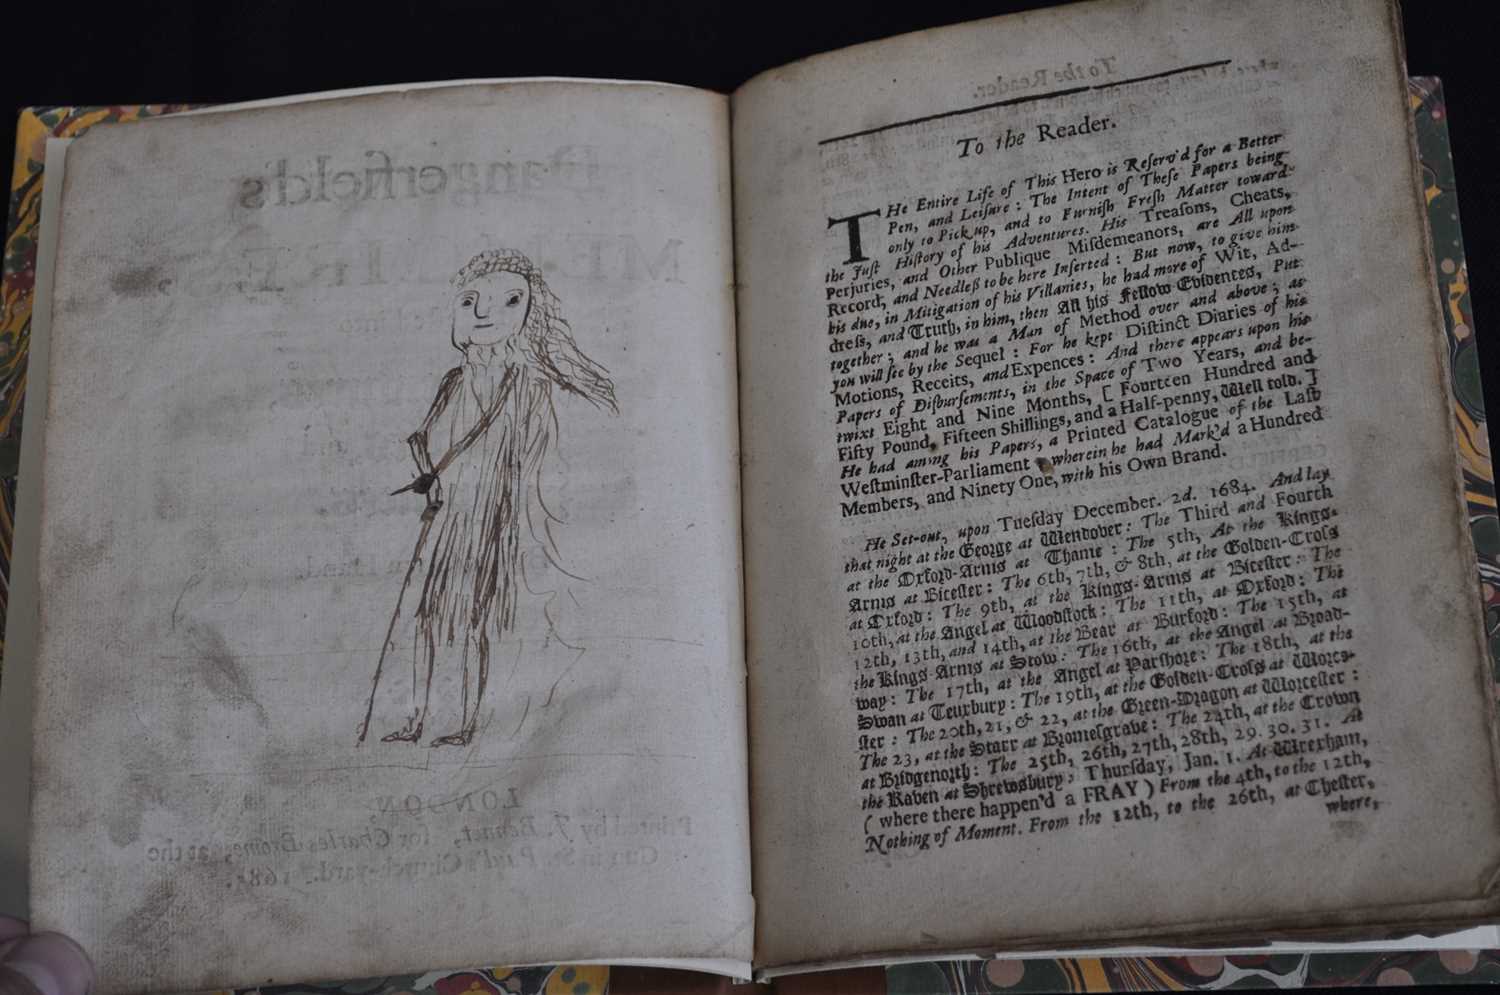 Dangerfield's
LONDON,
Printed by J. Bennet, for Charles Brome, at the
Gun in St. Paul's Church-yard. 168
To the Reader.
THe Entire Life of This Hero is Reſerv'd for a Better
Pen, and Leiſure : The Intent of Theſe Papers being
only to Pick up, and to Furniſh Freſh Matter toward
the Juſt Hiſtory of his Adventures. His Treaſons, Cheats,
Perjuries, and Other Publique Miſdemeanors, are All upon
Record, and Needleſs to be here Inſerted : But now, to give him
his due, in Mitigation of his Villanies, he had more of Wit, Ad-
dreſs, and Truth, in him, then All his Fellow Evidences, Put
together ; and he was a Man of Method over and above ; as
you will ſee by the Sequel : For he kept Diſtinct Diaries of his
Motions, Receits, and Expences : And there appears upon his
Papers of Diſburſements, in the Space of Two Years, and be-
twixt Eight and Nine Months, [ Fourteen Hundred and
Fifty Pound, Fifteen Shillings, and a Half-penny, Well told. ]
He had among his Papers, a Printed Catalogue of the Laſt
Weſtminſter-Parliament wherein he had Mark'd a Hundred
Members, and Ninety One, with his Own Brand.
He Set-out, upon Tueſday December. 2d. 1684. And lay
that night at the George at Wendover : The Third and Fourth
at the Oxford-Arms at Thame : The 5th, At the Kings-
Arms at Biceſter : The 6th, 7th, & 8th, at the Golden-Croſs
at Oxford : The 9th, at the Kings-Arms at Biceſter : The
10th, at the Angel at Woodſtock : The 11th, at Oxford : The
12th, 13th, and 14th, at the Bear at Burford : The 15th, at
the Kings Arms at Stow : The 16th, at the Angel at Broad-
way : The 17th, at the Angel at Parſhore : The 18th, at the
Swan at Teuxbury : The 19th, at the Golden-Croſs at Worce-
ſter : The 20th, 21, & 22, at the Green-Dragon at Worceſter :
The 23, at the Starr at Bromeſgrave : The 24th, at the Crown
at Bridgenorth : The 25th, 26th, 27th, 28th, 29. 30. 31. At
the Raven at Shrewsbury ; Thurſday, Jan. 1. At Wrexham,
( where there happen'd a FRAY ) From the 4th, to the 12th,
Nothing of Moment. From the 12th, to the 26th, at Cheſter,
where,